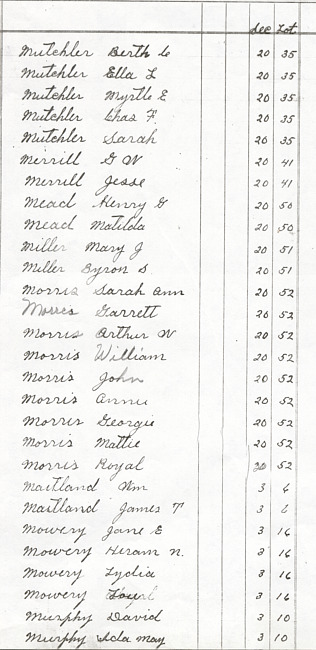 Sec Lot
Mutchler Berth C 20 35
Mutchler Ella L 20 35
Mutchler Myrtle E 20 35
Mutchler Chas F. 20 35
Mutchler Sarah 20 35
Merrill G W 20 41
Merrill Jesse 20 41
Mead Henry G 20 50
Mead Matilda 20 50
Miller Mary J 20 51
Miller Byron S 20 51
Morris Sarah Ann 20 52
Morres Garrett 20 52
Morris Arthur W 20 52
Morris William 20 52
Morris John 20 52
Morris Annie 20 52
Morris Georgie 20 52
Morris Mattie 20 52
Morris Royal 20 52
Maitland Wm 3 6
Maitland James T 3 6
Mowery Jane E 3 16
Mowery Hiram N. 3 16
Mowery Lydia 3 16
Mowery 3 16
Murphy David 3 10
Murphy Ida May 3 10